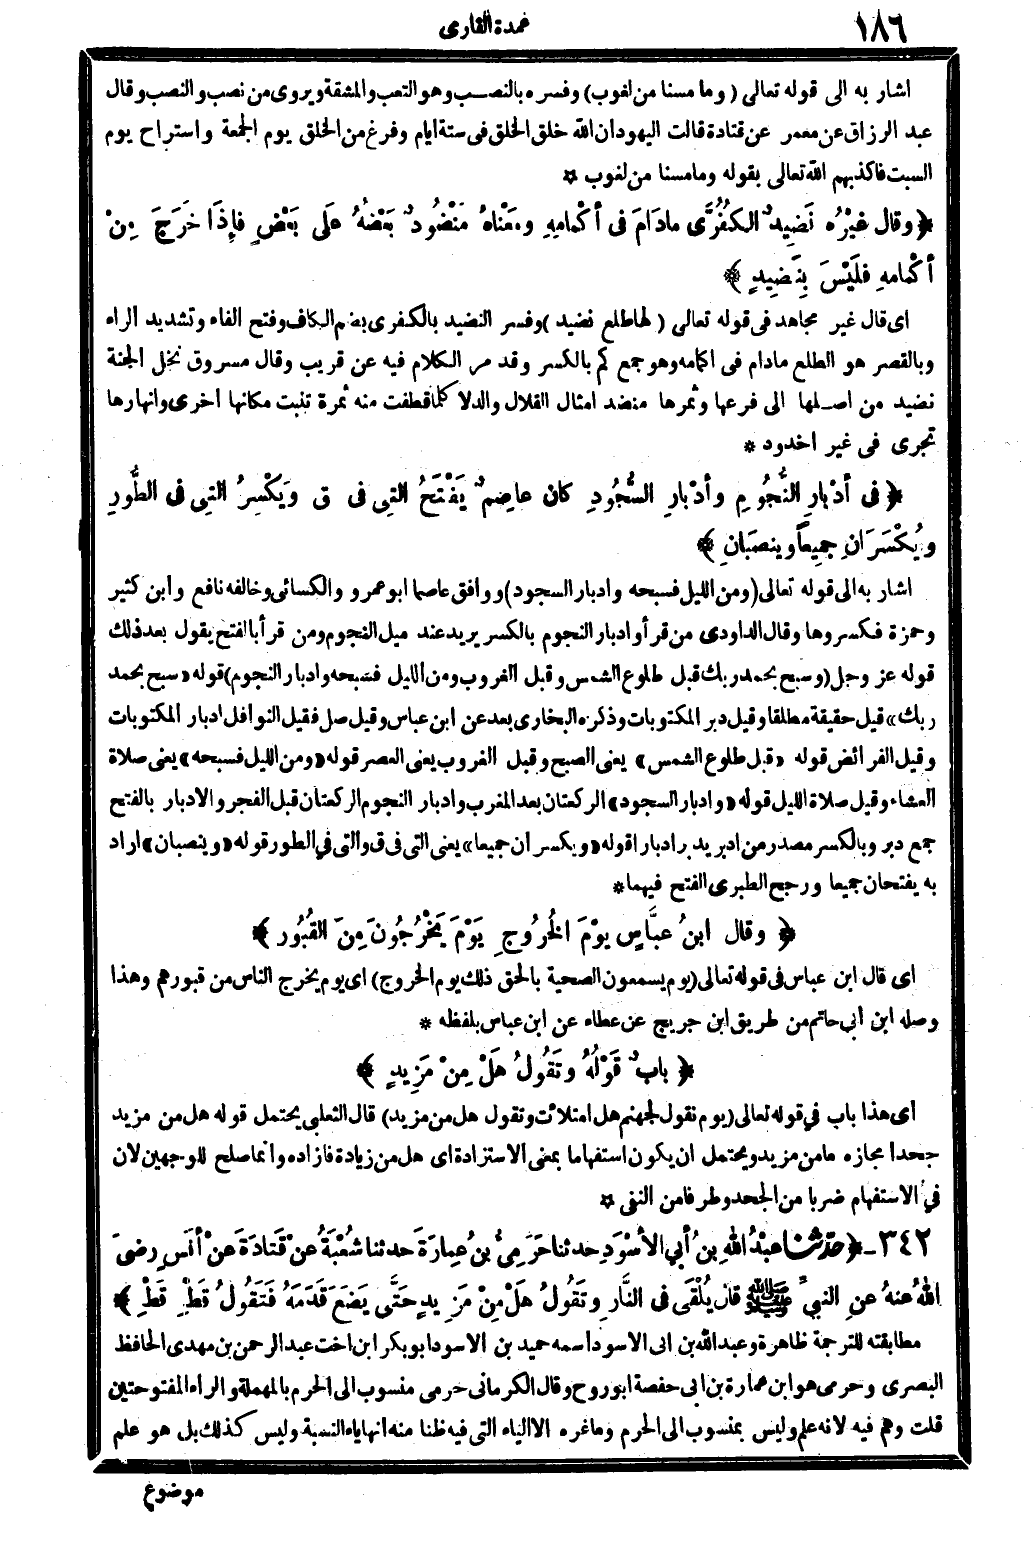 ١٨٦
عمدة القارى
اشار به الى قوله تعالى ( وما مسنا من لغوب ) وفسره بالنصب وهو التعب والمشقة ويروى من نصب والنصب وقال
عبد الرزاق عن معمر عن قتادة قالت اليهود ان الله خلق الخلق فى ستة ايام وفرغ من الخلق يوم الجمعة واستراح يوم
السبت فاكذبهم الله تعالى بقوله وما مسنا من لغوب ✡
﴿ وقال غَيْرُه نَضِيدٌ الكُفُرَّى مادَامَ فى أكْمامِهِ ومَعْناهُ مَنْضُودٌ بَعْضُهُ عَلَى بَعْضٍ فإِذَا خَرَجَ مِنْ
أكْمامِهِ فلَيْسَ بِنَضِيدٍ ﴾
اى قال غير مجاهد فى قوله تعالى ( لها طلع نضيد ) وفسر النضيد بالكفرى بضم الكاف وفتح الفاء وتشديد الراء
وبالقصر هو الطلع مادام فى اكمامه وهو جمع كم بالكسر وقد مر الكلام فيه عن قريب وقال مسروق نخل الجنة
نضيد من اصلها الى فرعها وثمرها منضد امثال القلال والدلا كلما قطفت منه ثمرة تنبت مكانها اخرى وانهارها
تجرى فى غير اخدود *
﴿ فى أدْبارِ النُّجُومِ وأدْبارِ السُّجُودِ كان عاصِمٌ يَفْتَحُ التِى فى ق ويَكْسِرُ التِى فى الطُّورِ
ويُكْسَرَانِ جمِيعاً ويُنصَبَانِ ﴾
اشار به الى قوله تعالى ( ومن الليل فسبحه وادبار السجود ) ووافق عاصما ابو عمرو والكسائى وخالفه نافع وابن كثير
وحمزة فكسروها وقال الداودى من قرأ وادبار النجوم بالكسر يريد عند ميل النجوم ومن قرأ بالفتح يقول بعد ذلك
قوله عز وجل ( وسبح بحمد ربك قبل طلوع الشمس وقبل الغروب ومن الليل فسبحه وادبار النجوم ) قوله « سبح بحمد
ربك » قيل حقيقة مطلقا وقيل دبر المكتوبات وذكره البخارى بعد عن ابن عباس وقيل صل فقيل النوافل ادبار المكتوبات
وقيل الفرائض قوله « قبل طلوع الشمس » يعنى الصبح وقبل الغروب يعنى العصر قوله « ومن الليل فسبحه » يعنى صلاة
العشاء وقيل صلاة الليل قوله « وادبار السجود » الركعتان بعد المغرب وادبار النجوم الركعتان قبل الفجر والادبار بالفتح
جمع دبر وبالكسر مصدر من ادبر يدبر ادبارا قوله « ويكسران جميعا » يعنى التى فى ق والتى في الطور قوله « وينصبان » اراد
به يفتحان جميعا ورجح الطبرى الفتح فيهما *
﴿ وقال ابنُ عبَّاسٍ يَوْمَ الخُرُوجِ يَوْمَ يَخْرُجُونَ مِنَ القُبُورِ ﴾
اى قال ابن عباس فى قوله تعالى ( يوم يسمعون الصحية بالحق ذلك يوم الخروج ) اى يوم يخرج الناس من قبورهم وهذا
وصله ابن ابى حاتم من طريق ابن جريج عن عطاء عن ابن عباس بلفظه *
﴿ بابٌ قَوْلُهُ وتَقُولُ هَلْ مِنْ مَزِيدٍ ﴾
اى هذا باب في قوله تعالى ( يوم نقول لجهنم هل امتلات وتقول هل من مزيد ) قال الثعلبى يحتمل قوله هل من مزيد
جحدا مجازه مامن مزيد ويحتمل ان يكون استفهاما بمعنى الاستزادة اى هل من زيادة فازاده وانما صلح للوجهين لان
في الاستفهام ضربا من الجحد وطرفا من النفى ✡
٣٤٢ - ﴿ حدّثنا عبْدُ اللهِ بنُ أبي الأسْوَدِ حدثنا حَرَمِىُّ بنُ عِمارَةَ حدثنا شُعْبَةُ عنْ قَتادَةَ عنْ أنَسٍ رضىَ
اللهُ عنهُ عنِ النبيِّ ﷺ قال يُلْقَى فى النَّارِ وتَقُولُ هَلْ مِنْ مَزِيدٍ حَتَّى يَضَعَ قَدَمَهُ فَتَقُولُ قَطْ قَطْ ﴾
مطابقته للترجمة ظاهرة وعبد الله بن ابى الاسود اسمه حميد بن الاسود ابو بكر ابن اخت عبد الرحمن بن مهدى الحافظ
البصرى وحرمى هو ابن عمارة بن ابى حفصة ابو روح وقال الكرمانى حرمى منسوب الى الحرم بالمهملة والراء المفتوحتين
قلت وهم فيه لانه علم وليس بمنسوب الى الحرم وما غره الا الياء التى فيه ظنا منه انها ياء النسبة وليس كذلك بل هو علم
موضوع